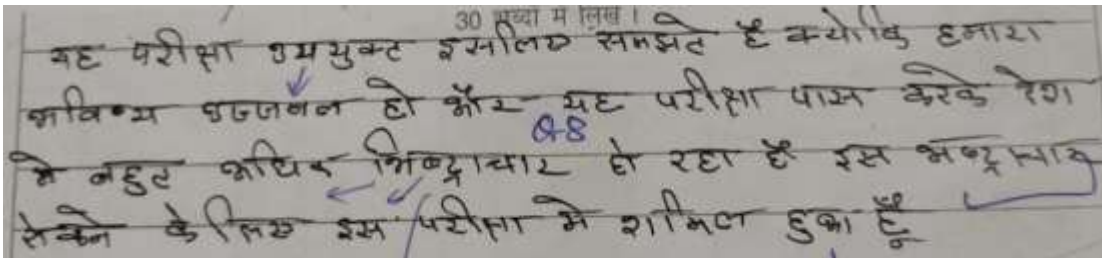 30 शब्दो में लिखें।
यह परीक्षा उपयुक्ट इसलिए समझटे है क्योकि हमारा
भविष्य उज्जवल हो और यह परीक्षा पास करके देश
08
मे बहुट अधिक भिष्ट्राचार हो रहा है इस भष्ट्राचार
रोकने के लिए इस परीक्षा मे शामिल हुआ हूँ